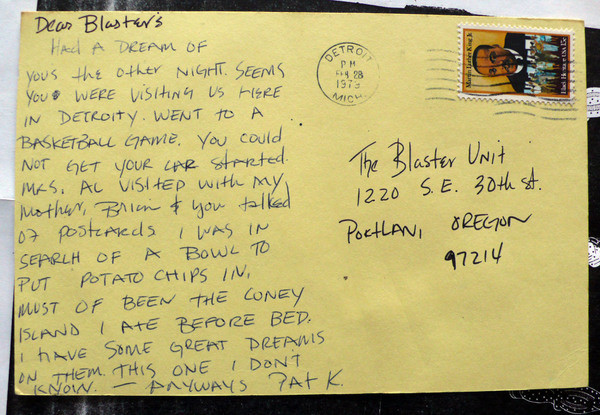 Dear Blaster's
Had a dream of
yous the other night. Seems
you were visiting us here
in Detroity. Went to a
basketball game. You could
not get your car started.
Mrs. Al visited with my
mother, Brian & you talked
of postcards I was in
search of a bowl to
put potato chips in.
Must of been the coney
island I ate before bed.
I have some great dreams
on them. This one I don't
know. — Anyways Pat K.
DETROIT
PM
FEB 28
1979
MICH.
Martin Luther King Jr.
Black Heritage USA 15c
The Blaster Unit
1220 S.E. 30th st.
Portlan, Oregon
97214